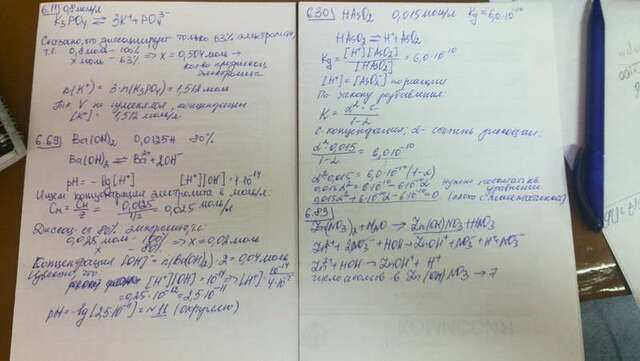 6.11) 0,8 моль/л
K₃PO₄ ⇌ 3K⁺ + PO₄³⁻
Сказано, что диссоциирует только 63% электролита,
т.е. 0,8 моль - 100%
x моль - 63% ⇒ x = 0,504 моль →
кол-во
электролита
n(K⁺) = 3·n(K₃PO₄) = 1,512 моль
Т.к. V не изменяется, концентрация
[K⁺] = 1,512 моль/л
6.69) Ba(OH)₂ 0,0125н 80%
Ba(OH)₂ ⇌ Ba²⁺ + 2OH⁻
pH = -lg[H⁺] [H⁺][OH⁻] = 1·10⁻¹⁴
Ищем концентрацию электролита в моль/л:
Cм = Cн/z = 0,0125/1/2 = 0,025 моль/л
Диссоц-ет 80% электролита, то:
0,025 моль - 100%
- 80% ⇒ x = 0,02 моль
Концентрация [OH⁻] = n(Ba(OH)₂)·2 = 0,04 моль
Известно, что
[H⁺][OH⁻] = 10⁻¹⁴ ⇒ [H⁺] = 10⁻¹⁴/4·10⁻²
= 0,25·10⁻¹² = 2,5·10⁻¹¹
pH = -lg[2,5·10⁻¹¹] = ~11 (округлено)
6.30) HAsO₂ 0,015 моль/л Kд = 6,0·10⁻¹⁰
HAsO₂ ⇌ H⁺ + AsO₂⁻
Kд = [H⁺][AsO₂⁻]/[HAsO₂] = 6,0·10⁻¹⁰
[H⁺] = [AsO₂⁻] по реакции
По закону разбавления:
K = α²·c/1-α
c - концентрация; α - степень диссоциации:
α²·0,015/1-α = 6,0·10⁻¹⁰
α²·0,015 = 6,0·10⁻¹⁰(1-α)
0,015α² = 6·10⁻¹⁰ - 6·10⁻¹⁰α
0,015α² + 6·10⁻¹⁰α - 6·10⁻¹⁰ = 0
уравнение
6.89)
Zn(NO₃)₂ + H₂O → Zn(OH)NO₃ + HNO₃
Zn²⁺ + 2NO₃⁻ + HOH → ZnOH⁺ + NO₃⁻ + H⁺ + NO₃⁻
Zn²⁺ + HOH → ZnOH⁺ + H⁺
число атомов в Zn(OH)NO₃ → 7